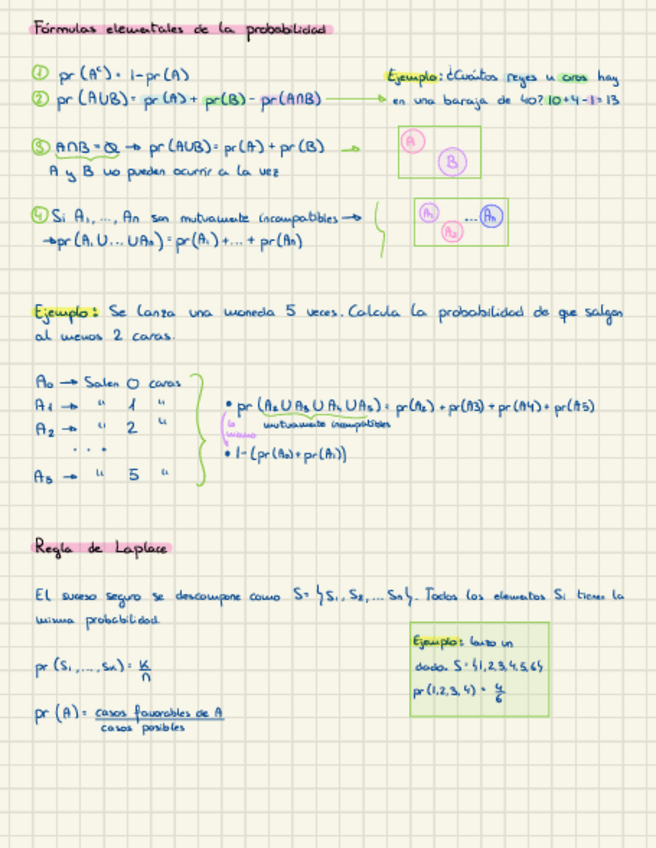 Fórmulas elementales de la probabilidad
① pr (Aᶜ) = 1-pr(A)
② pr (A∪B) = pr(A) + pr(B) - pr(A∩B) →
Ejemplo: ¿Cuántos reyes u oros hay
en una baraja de 40? 10+4-1=13
③ A∩B = Ø → pr (A∪B) = pr(A) + pr(B) →
A y B no pueden ocurrir a la vez
A
B
④ Si A₁, ..., An son mutuamente incompatibles →
→ pr (A₁ ∪ ... ∪ An) = pr(A₁) + ... + pr(An)
A₁ ... An
A₂
Ejemplo: Se lanza una moneda 5 veces. Calcula la probabilidad de que salgan
al menos 2 caras.
A₀ → Salen 0 caras
A₁ → " 1 "
A₂ → " 2 "
...
A₅ → " 5 "
• pr (A₂ ∪ A₃ ∪ A₄ ∪ A₅) = pr(A₂) + pr(A3) + pr(A4) + pr(A5)
mutuamente incompatibles
lo
mismo
• 1-(pr(A₀)+pr(A₁))
Regla de Laplace
El suceso seguro se descompone como S= {S₁, S₂, ... Sn}. Todos los elementos Si tienen la
misma probabilidad.
pr (S₁, ..., Sk) = K/n
pr (A) = casos favorables de A
casos posibles
Ejemplo: lanzo un
dado. S = {1,2,3,4,5,6}
pr (1,2,3,4) = 4/6